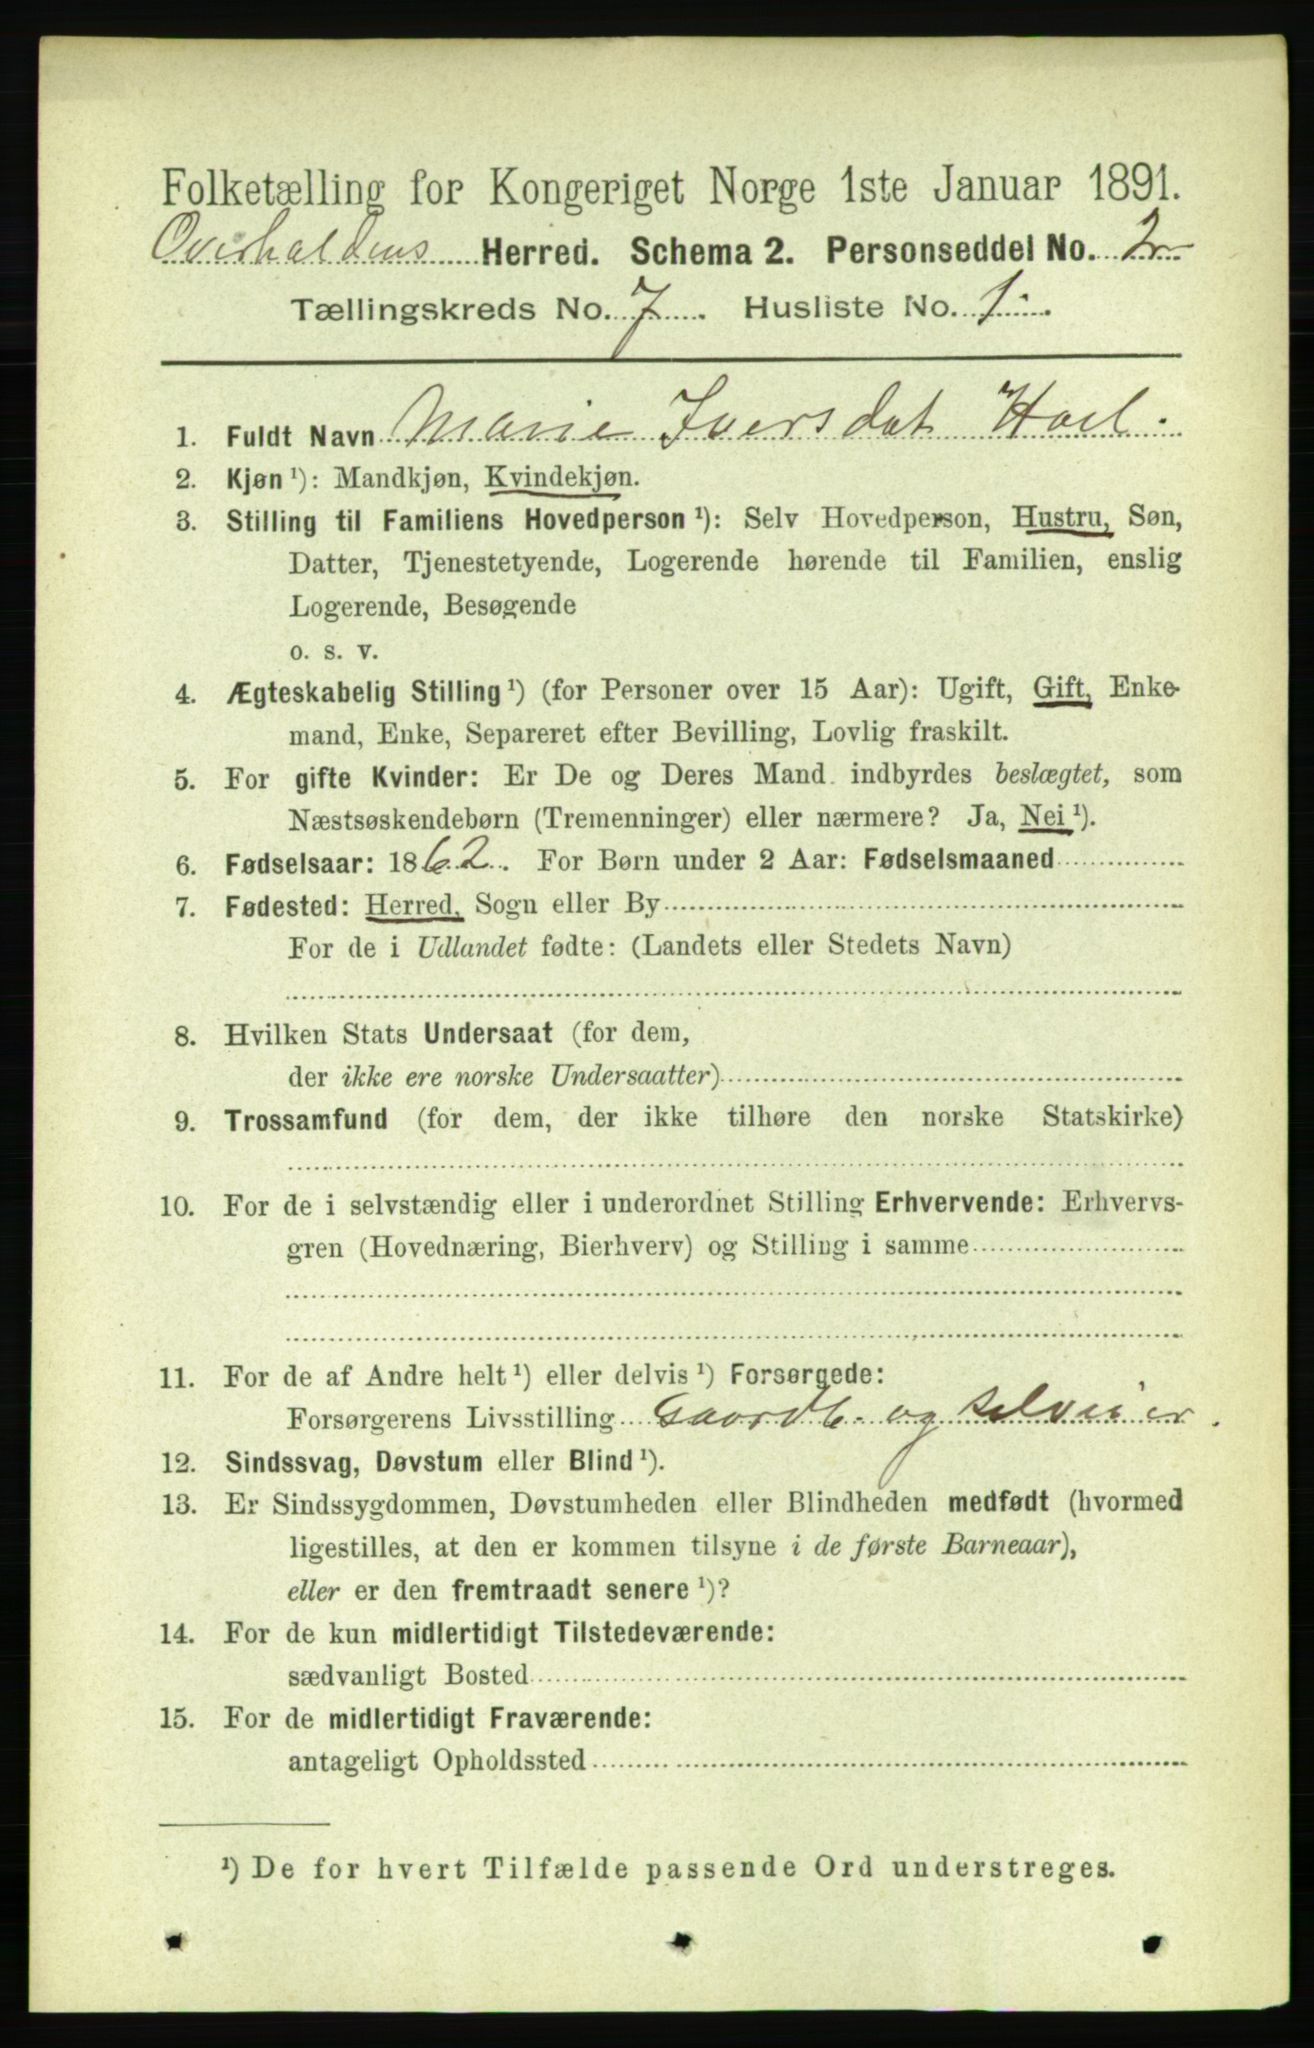 Folketælling for Kongeriget Norge 1ste Januar 1891.
Overhaldens Herred. Schema 2. Personseddel No. 2
Tællingskreds No. 7. Husliste No. 1.
1. Fuldt Navn Marie Iversdat Hoel.
2. Kjøn ¹): Mandkjøn, Kvindekjøn.
3. Stilling til Familiens Hovedperson ¹): Selv Hovedperson, Hustru, Søn,
Datter, Tjenestetyende, Logerende hørende til Familien, enslig
Logerende, Besøgende
o. s. v.
4. Ægteskabelig Stilling ¹) (for Personer over 15 Aar): Ugift, Gift, Enke-
mand, Enke, Separeret efter Bevilling, Lovlig fraskilt.
5. For gifte Kvinder: Er De og Deres Mand indbyrdes beslægtet, som
Næstsøskendebørn (Tremenninger) eller nærmere? Ja, Nei ¹).
6. Fødselsaar: 1862. For Børn under 2 Aar: Fødselsmaaned
7. Fødested: Herred, Sogn eller By
For de i Udlandet fødte: (Landets eller Stedets Navn)
8. Hvilken Stats Undersaat (for dem,
der ikke ere norske Undersaatter)
9. Trossamfund (for dem, der ikke tilhøre den norske Statskirke)
10. For de i selvstændig eller i underordnet Stilling Erhvervende: Erhvervs-
gren (Hovednæring, Bierhverv) og Stilling i samme
11. For de af Andre helt ¹) eller delvis ¹) Forsørgede:
Forsørgerens Livsstilling Gaardb. og selveier.
12. Sindssvag, Døvstum eller Blind ¹).
13. Er Sindssygdommen, Døvstumheden eller Blindheden medfødt (hvormed
ligestilles, at den er kommen tilsyne i de første Barneaar),
eller er den fremtraadt senere ¹)?
14. For de kun midlertidigt Tilstedeværende:
sædvanligt Bosted
15. For de midlertidigt Fraværende:
antageligt Opholdssted
¹) De for hvert Tilfælde passende Ord understreges.